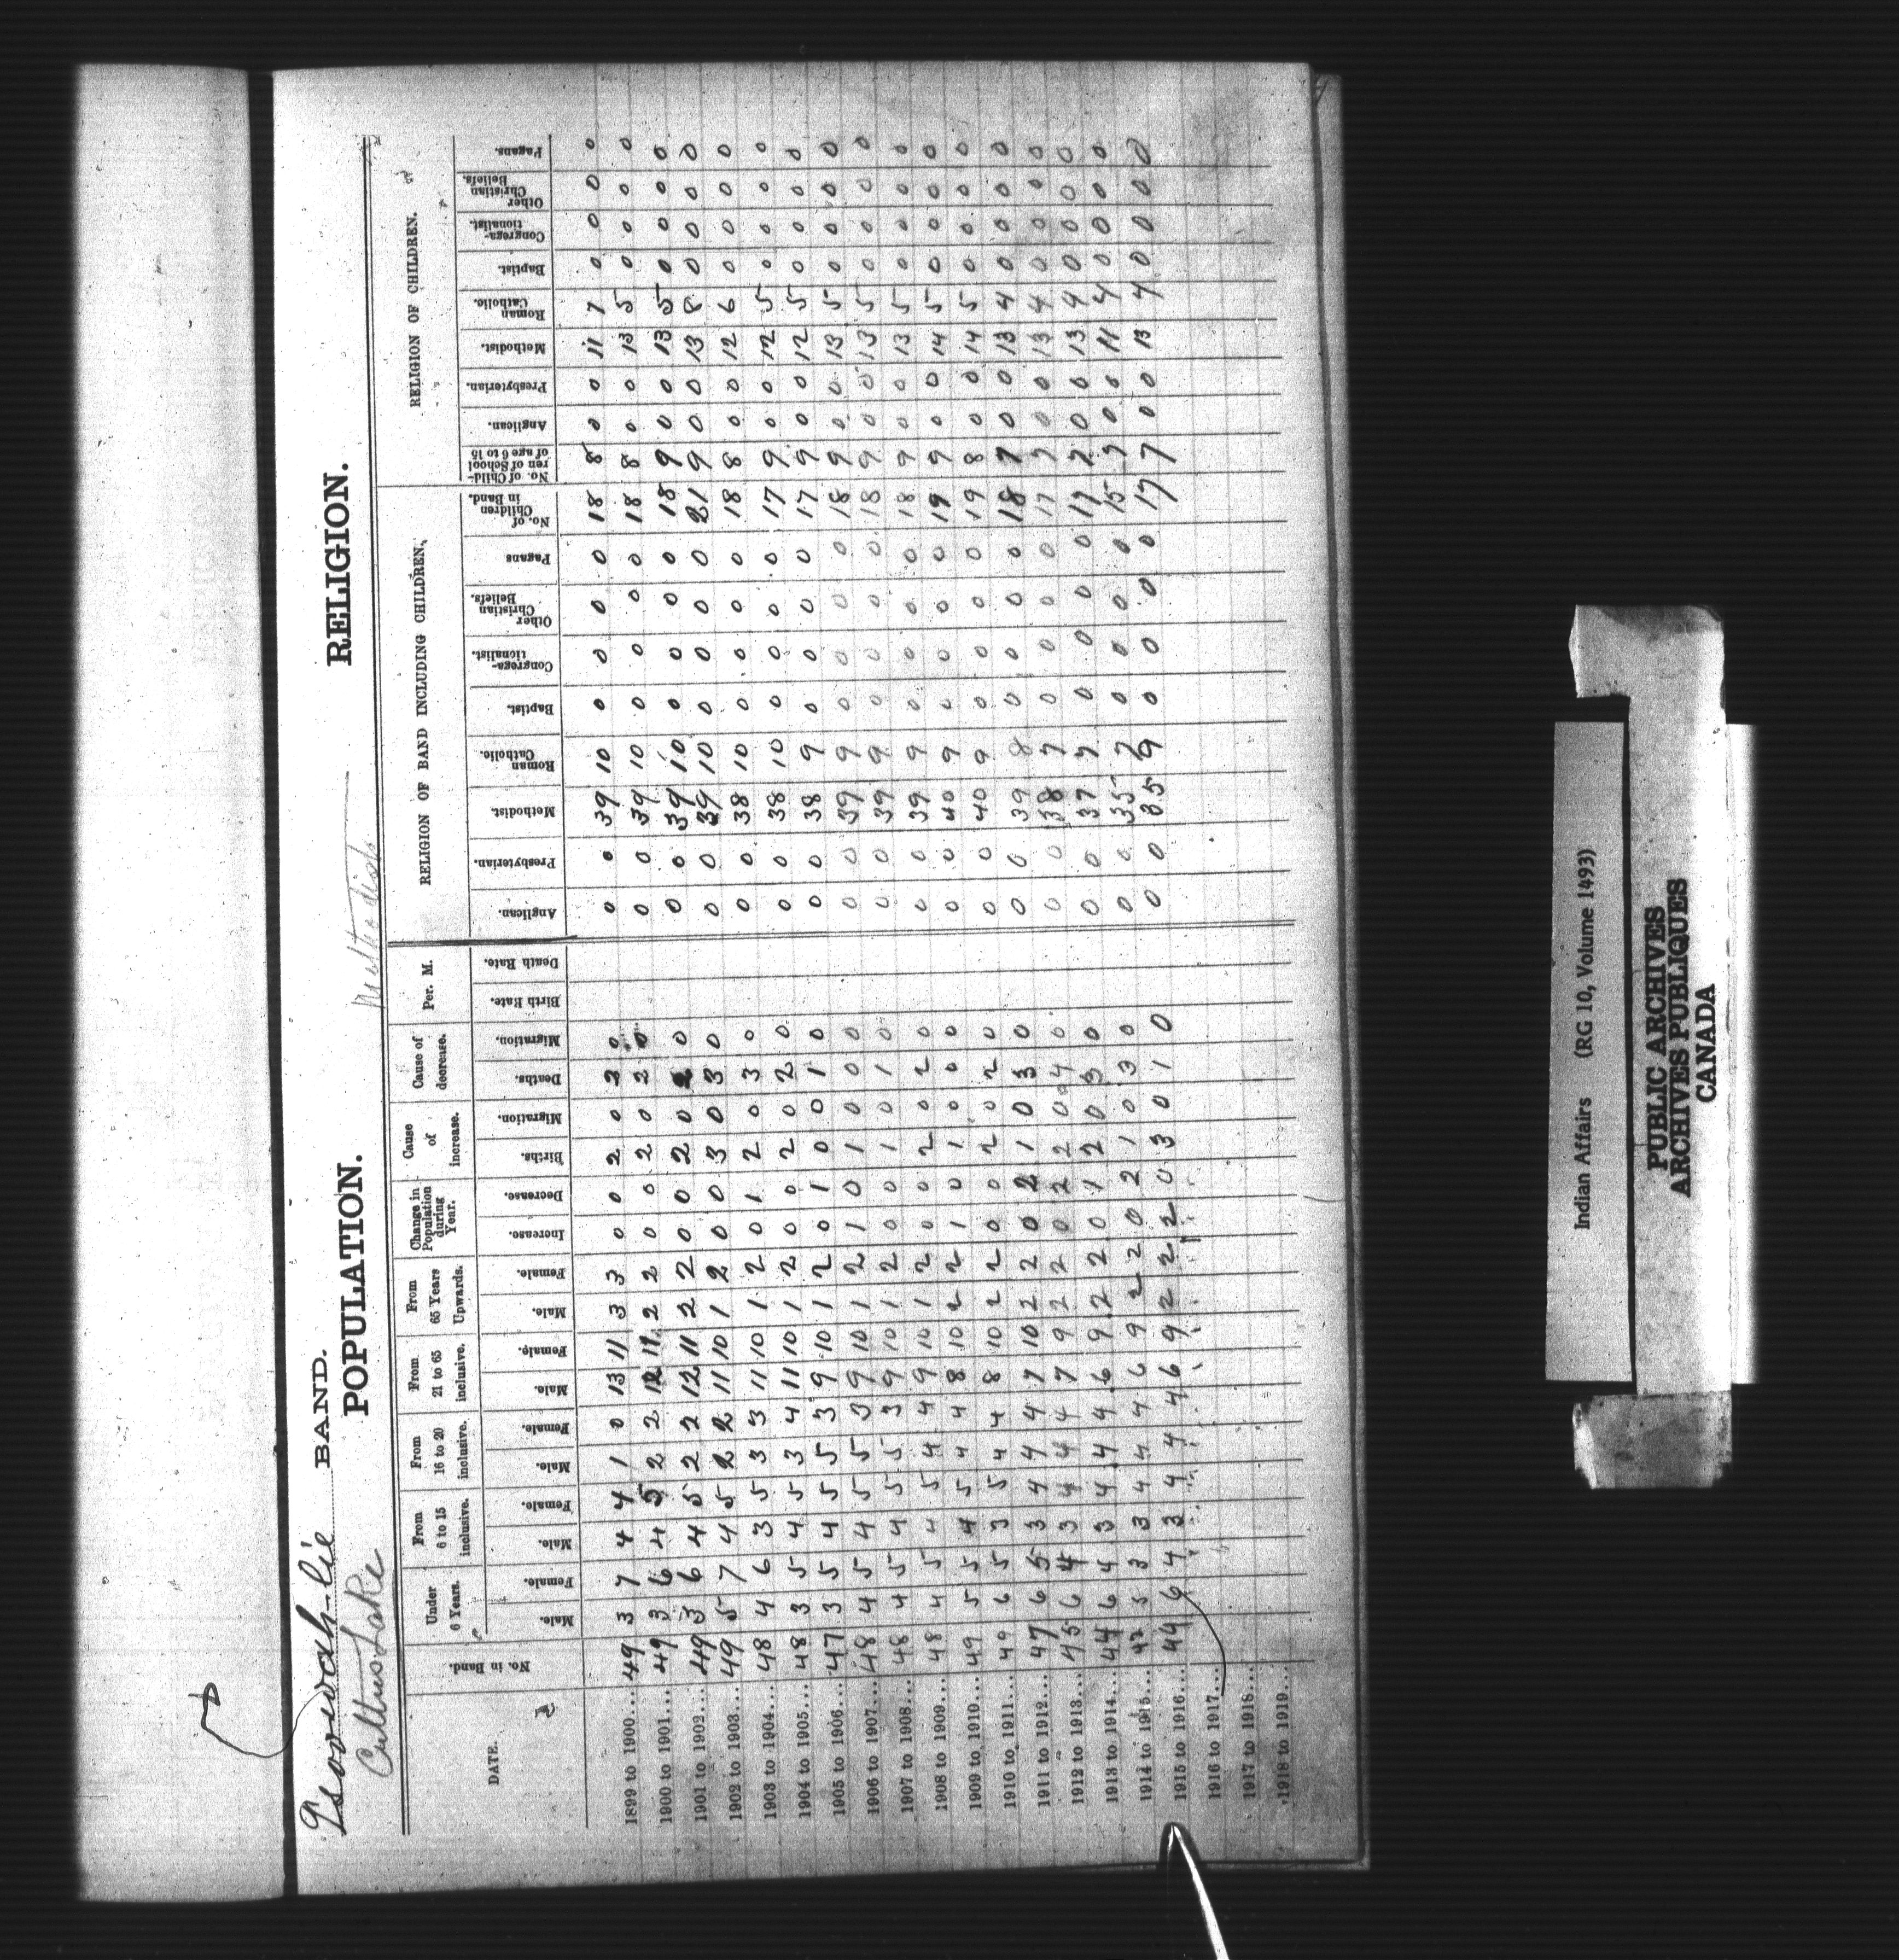 Tsoowah-lie BAND.
Cultus Lake
Methodist
POPULATION. RELIGION.
DATE. No. in Band. Under 6 Years. From 6 to 15 inclusive. From 16 to 20 inclusive. From 21 to 65 inclusive. From 65 Years Upwards. Change in Population during Year. Cause of increase. Cause of decrease. Per. M. RELIGION OF BAND INCLUDING CHILDREN. RELIGION OF CHILDREN.
Male. Female. Male. Female. Male. Female. Male. Female. Male. Female. Increase. Decrease. Births. Migration. Deaths. Migration. Birth Rate. Death Rate. Anglican. Presbyterian. Methodist. Roman Catholic. Baptist. Congrega-tionalist. Other Christian Beliefs. Pagans No. of Children in Band. No. of Child-ren of School of age 6 to 15 Anglican. Presbyterian. Methodist. Roman Catholic. Baptist. Congrega-tionalist. Other Christian Beliefs. Pagans.
1899 to 1900... 49 3 7 4 4 1 0 13 11 3 3 0 0 2 0 2 0 0 0 39 10 0 0 0 0 18 8 0 0 11 7 0 0 0 0
1900 to 1901... 49 3 6 4 5 2 2 12 11 2 2 0 0 2 0 2 0 0 0 39 10 0 0 0 0 18 8 0 0 13 5 0 0 0 0
1901 to 1902... 49 3 6 4 5 2 2 12 11 2 2 0 0 2 0 2 0 0 0 39 10 0 0 0 0 18 9 0 0 13 5 0 0 0 0
1902 to 1903... 49 5 7 4 5 2 2 11 10 1 2 0 0 3 0 3 0 0 0 39 10 0 0 0 0 21 9 0 0 13 8 0 0 0 0
1903 to 1904... 48 4 6 3 5 3 3 11 10 1 2 0 1 2 0 3 0 0 0 38 10 0 0 0 0 18 8 0 0 12 6 0 0 0 0
1904 to 1905... 48 3 5 4 5 3 4 11 10 1 2 0 0 2 0 2 0 0 0 38 10 0 0 0 0 17 9 0 0 12 5 0 0 0 0
1905 to 1906... 47 3 5 4 5 5 3 9 10 1 2 0 1 0 0 1 0 0 0 38 9 0 0 0 0 17 9 0 0 12 5 0 0 0 0
1906 to 1907... 48 4 5 4 5 5 3 9 10 1 2 1 0 1 0 0 0 0 0 39 9 0 0 0 0 18 9 0 0 13 5 0 0 0 0
1907 to 1908... 48 4 5 4 5 5 3 9 10 1 2 0 0 1 0 1 0 0 0 39 9 0 0 0 0 18 9 0 0 13 5 0 0 0 0
1908 to 1909... 48 4 5 4 5 4 4 9 10 1 2 0 0 2 0 2 0 0 0 39 9 0 0 0 0 18 9 0 0 13 5 0 0 0 0
1909 to 1910... 49 5 5 4 5 4 4 8 10 2 2 1 0 1 0 0 0 0 0 40 9 0 0 0 0 19 9 0 0 14 5 0 0 0 0
1910 to 1911... 49 6 5 3 5 4 4 8 10 2 2 0 0 2 0 2 0 0 0 40 9 0 0 0 0 19 8 0 0 14 5 0 0 0 0
1911 to 1912... 47 6 5 3 4 4 4 7 10 2 2 0 2 1 0 3 0 0 0 39 8 0 0 0 0 18 7 0 0 13 4 0 0 0 0
1912 to 1913... 45 6 4 3 4 4 4 7 9 2 2 0 2 2 0 4 0 0 0 38 7 0 0 0 0 17 7 0 0 13 4 0 0 0 0
1913 to 1914... 44 6 4 3 4 4 4 6 9 2 2 0 1 2 0 3 0 0 0 37 7 0 0 0 0 17 7 0 0 13 4 0 0 0 0
1914 to 1915... 42 5 3 3 4 4 4 6 9 2 2 0 2 1 0 3 0 0 0 35 7 0 0 0 0 15 7 0 0 11 4 0 0 0 0
1915 to 1916... 44 6 4 3 4 4 4 6 9 2 2 2 0 3 0 1 0 0 0 35 9 0 0 0 0 17 7 0 0 13 4 0 0 0 0
1916 to 1917...
1917 to 1918...
1918 to 1919...
Indian Affairs (RG 10, Volume 1493)
PUBLIC ARCHIVES
ARCHIVES PUBLIQUES
CANADA